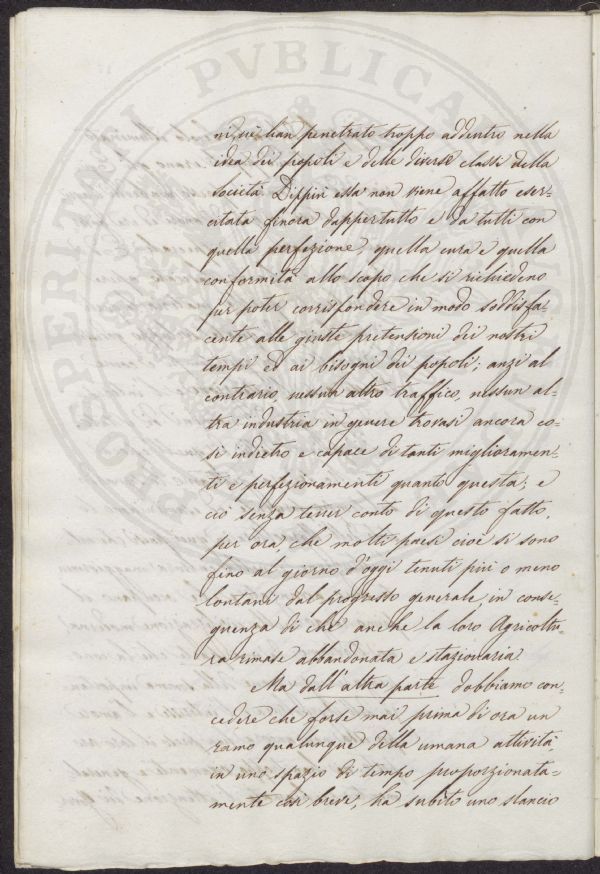 ni, vi han penetrato troppo addentro nella
idea dei popoli e delle diverse classi della
società. Dippiù essa non viene affatto eser-
citata finora dappertutto e da tutti con
quella perfezione, quella cura e quella
conformità allo scopo che si richiedono
per poter corrispondere in modo soddisfa-
cente alle giuste pretensioni dei nostri
tempi ed ai bisogni dei popoli; anzi al
contrario, nessun altro traffico, nessun al-
tra industria in genere trovasi ancora co-
sì indietro e capace di tanti miglioramen-
ti e perfezionamenti quanto questa; e
ciò senza tener conto di questo fatto,
per ora, che molti paesi cioè si sono
fino al giorno d'oggi tenuti più o meno
lontani dal progresso generale in conse-
guenza di che anche la loro Agricoltu-
ra rimase abbandonata e stazionaria.
Ma dall'altra parte dobbiamo con-
cedere che forse mai prima di ora un
ramo qualunque della umana attività
in uno spazio di tempo proporzionata-
mente così breve, ha subìto uno slancio
PROSPERITATI PVBLICAE